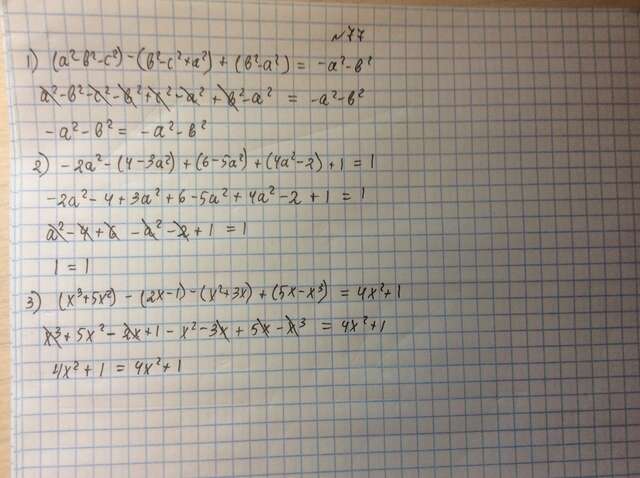 №77
1) (a²-в²-c²)-(в²-c²+a²)+(в²-a²) = -a²-в²
a²-в²-c²-в²+c²-a²+в²-a² = -a²-в²
-a²-в² = -a²-в²
2) -2a²-(4-3a²)+(6-5a²)+(4a²-2)+1 = 1
-2a²-4+3a²+6-5a²+4a²-2+1 = 1
a²-4+6-a²-2+1 = 1
1 = 1
3) (x³+5x²)-(2x-1)-(x²+3x)+(5x-x³) = 4x²+1
x³+5x²-2x+1-x²-3x+5x-x³ = 4x²+1
4x²+1 = 4x²+1